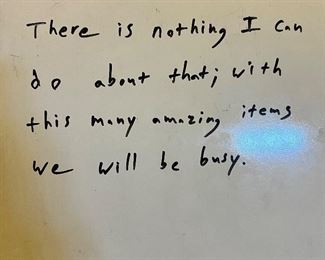 There is nothing I can
do about that; with
this many amazing items
we will be busy.